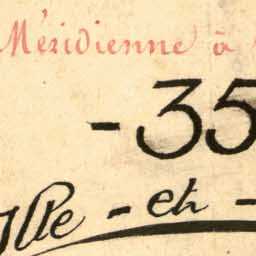 Méridienne à
- 35
Ille - et -